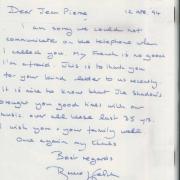 Dear Jean Pierre 12 APR. 94
I am sorry we could not
communicate on the telephone when
I called you. My French is no good
I'm afraid. Just is to thank you
for your kind letter to us recently
it is nice to know that The Shadows
brought you good times with our
music over all these last 35 yrs.
I wish you & your family well
Once again my thanks
Best regards
Bruce Welch